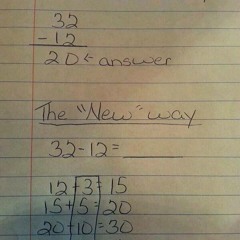 32
- 12
20 ← answer
The "New" way
32-12=
12+3=15
15+5=20
20+10=30